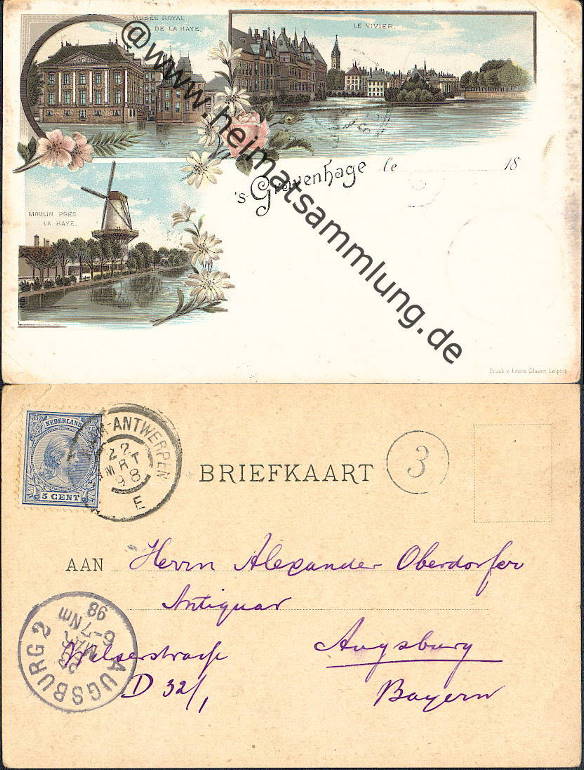 MUSÉE ROYAL
DE LA HAYE.
LE VIVIER.
@www.heimatsammlung.de
's Gravenhage le 18
MOULIN PRÈS
LA HAYE.
NEDERLAND
5 CENT
ANTWERPEN
22
MRT
98
E
BRIEFKAART
3
AAN Herrn Alexander Oberdorfer
Antiquar
Welserstrasse Augsburg
D 32/1 Bayern
AUGSBURG 2
6-7Nm
98